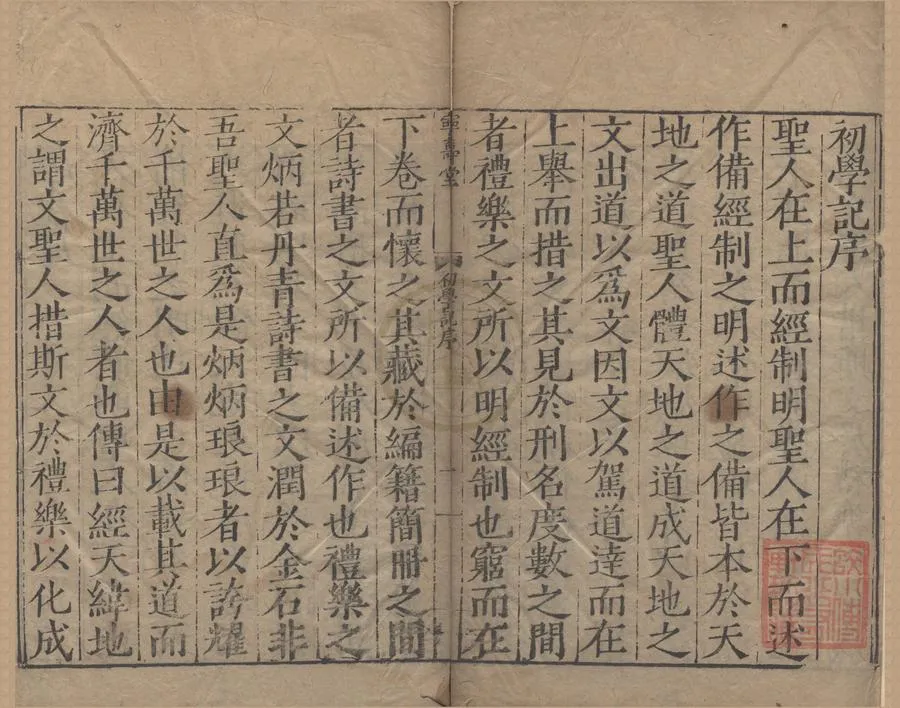 初學記序
聖人在上而經制明聖人在下而述
作備經制之明述作之備皆本於天
地之道聖人體天地之道成天地之
文出道以爲文因文以駕道達而在
上舉而措之其見於刑名度數之間
者禮樂之文所以明經制也窮而在
寧壽堂
初學記序
一
下卷而懷之其藏於編籍簡冊之間
者詩書之文所以備述作也禮樂之
文炳若丹青詩書之文潤於金石非
吾聖人直爲是炳炳琅琅者以誇耀
於千萬世之人也由是以載其道而
濟千萬世之人者也傳曰經天緯地
之謂文聖人措斯文於禮樂以化成